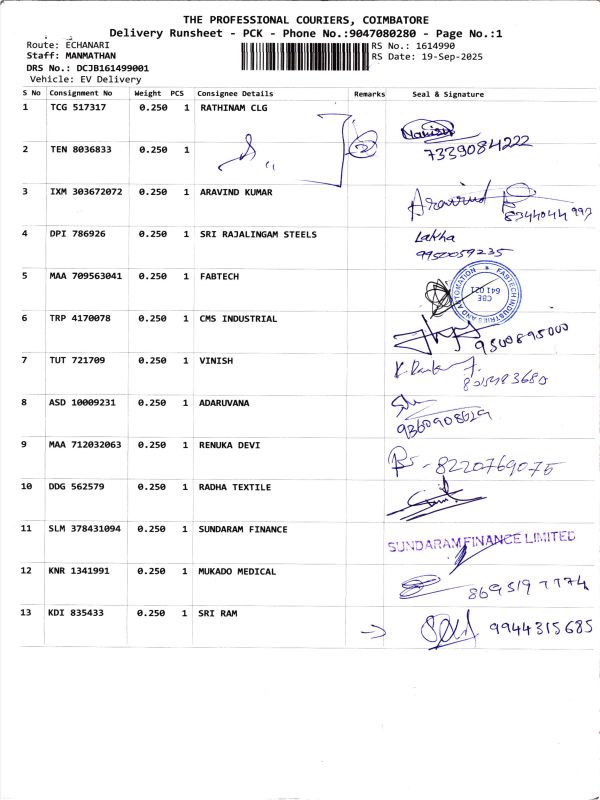 THE PROFESSIONAL COURIERS, COIMBATORE
Delivery Runsheet - PCK - Phone No.:9047080280 - Page No.:1
Route: ECHANARI
RS No.: 1614990
Staff: MANMATHAN
RS Date: 19-Sep-2025
DRS No.: DCJB161499001
Vehicle: EV Delivery
S No Consignment No Weight PCS Consignee Details Remarks Seal & Signature
1 TCG 517317 0.250 1 RATHINAM CLG
2 TEN 8036833 0.250 1 2 7339084222
3 IXM 303672072 0.250 1 ARAVIND KUMAR Aravind
4 DPI 786926 0.250 1 SRI RAJALINGAM STEELS Latha
9950059235
5 MAA 709563041 0.250 1 FABTECH FABTECH INDUSTRIES AND AUTOMATION CBE 641 021
6 TRP 4170078 0.250 1 CMS INDUSTRIAL 9500895000
7 TUT 721709 0.250 1 VINISH
8 ASD 10009231 0.250 1 ADARUVANA
9 MAA 712032063 0.250 1 RENUKA DEVI - 8220769075
10 DDG 562579 0.250 1 RADHA TEXTILE
11 SLM 378431094 0.250 1 SUNDARAM FINANCE SUNDARAM FINANCE LIMITED
12 KNR 1341991 0.250 1 MUKADO MEDICAL
13 KDI 835433 0.250 1 SRI RAM → 9944315685